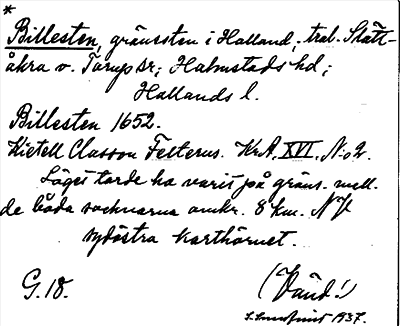 *
Billesten, gränssten i Halland; trol. Slätt-
åkra o. Torup sr; Halmstads hd;
Hallands l.
Billesten 1652.
Kietell Classon Felterus. Kr.A. XVI. No 2.
Läget torde ha varit på gräns. mell.
de båda socknarna omkr. 8 km. NV
sydöstra karthörnet.
G. 18.
(Vänd!)
1937.